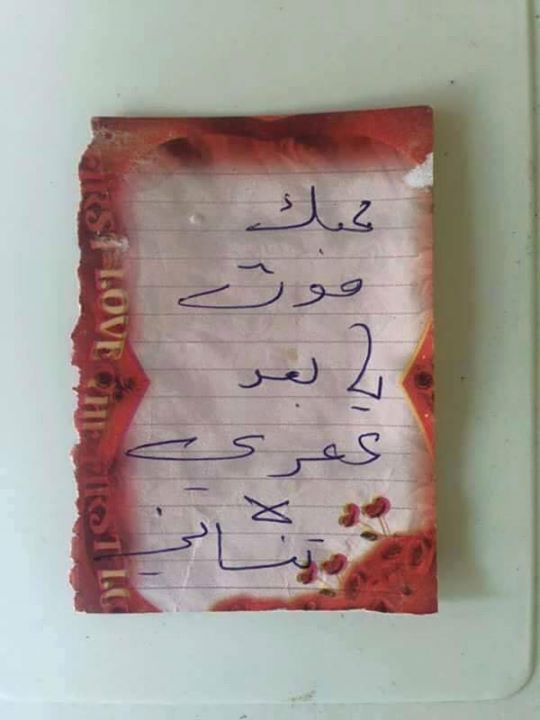 محبك
موت
يا بعد
عمري
لا
تنساني
FIRST LOVE THE FIRST LO